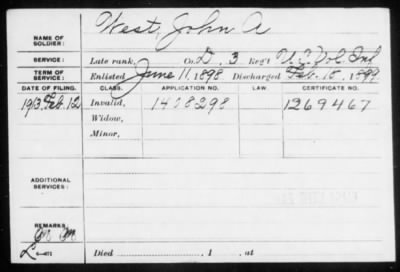 West, John A
NAME OF
SOLDIER:
SERVICE: Late rank, Co. D, 3 Reg't U.S. Vol Inf
TERM OF
SERVICE: Enlisted June 11, 1898 Discharged Feb. 10, 1899
DATE OF FILING. CLASS. APPLICATION NO. LAW. CERTIFICATE NO.
1913 Feb. 12 Invalid, 1408298 1269467
Widow,
Minor,
ADDITIONAL
SERVICES:
REMARKS:
L
Died , 1 , at